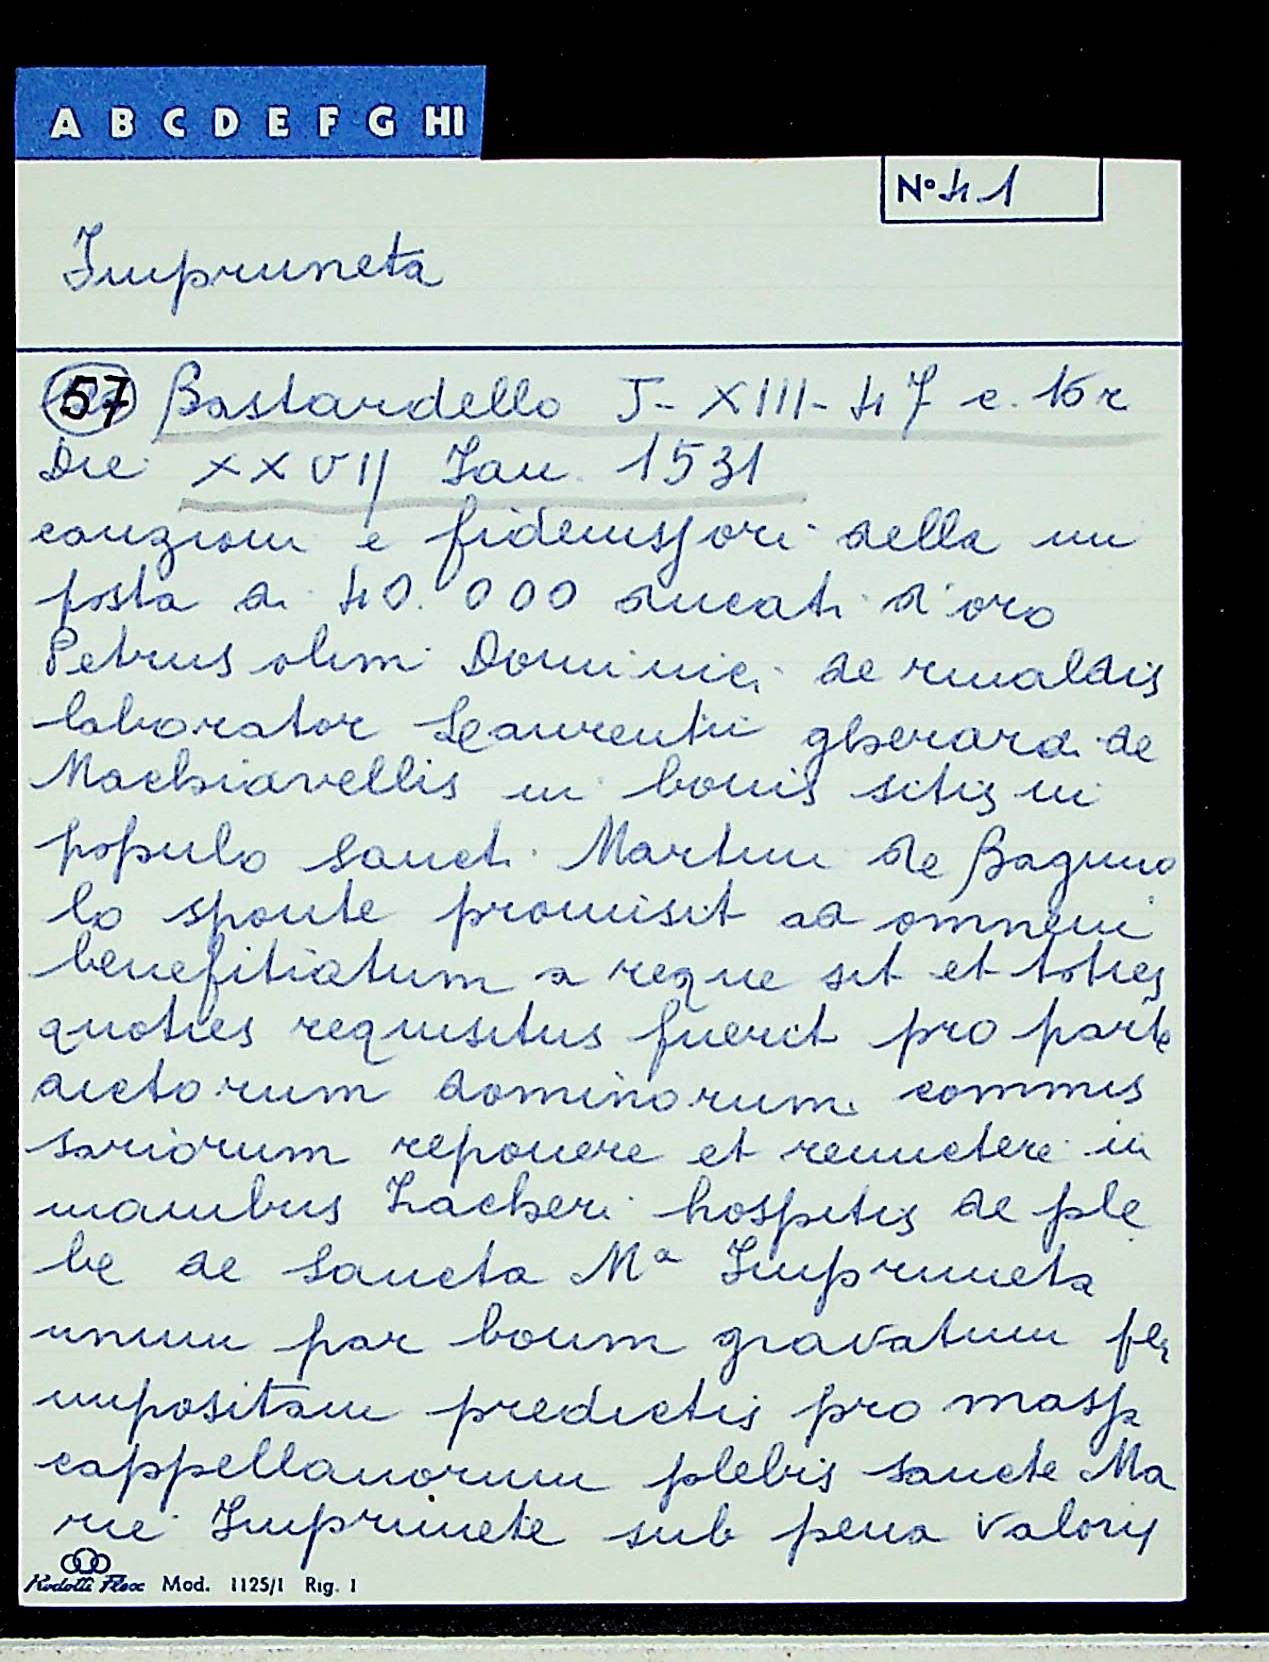 A B C D E F G HI
N° 41
Impruneta
57 Bastardello J- XIII- 47 c. 16 r
Die XXVII Jan. 1531
cauzioni e fideiussori della im
posta di 40.000 ducati d'oro
Petrus olim Dominici de rinaldis
laborator Laurentii gherardi de
Machiavellis in bonis sitis in
populo Sancti Martini de Bagnuo
lo sponte promisit ad omnem
benefitiatum a reque sit et toties
quoties requisitus fuerit pro parte
dictorum dominorum commis
sariorum reponere et remictere in
manibus Zacheri hospitis de ple
be de Sancta Mª Impruneta
unum par boum gravatum per
impositam predictis pro masp
cappellanorum plebis sancte Ma
rie Imprunete sub pena valoris
Mod. 1125/1 Rig. 1